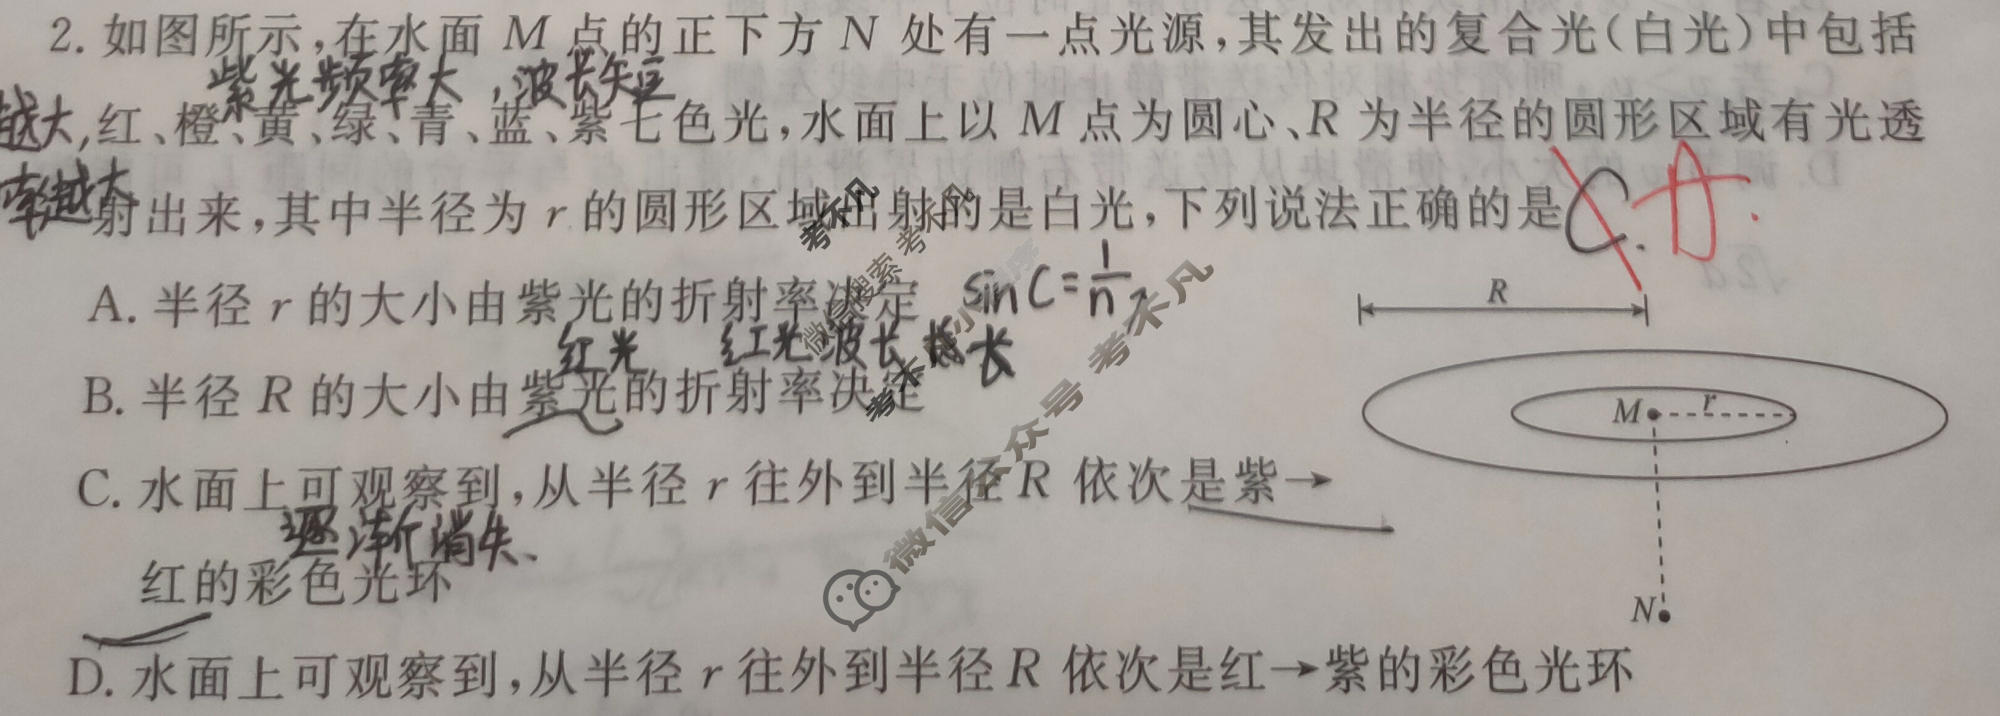 2. 如图所示,在水面 M 点的正下方 N 处有一点光源,其发出的复合光(白光)中包括
紫光频率大,波长短
越大,
红、橙、黄、绿、青、蓝、紫七色光,水面上以 M 点为圆心、R 为半径的圆形区域有光透
率越大
射出来,其中半径为 r 的圆形区域出射的是白光,下列说法正确的是 C. A.
A. 半径 r 的大小由紫光的折射率决定 sinC=1/n,
红光 红光波长 长
B. 半径 R 的大小由紫光的折射率决定
C. 水面上可观察到,从半径 r 往外到半径 R 依次是紫→
逐渐消失、
红的彩色光环
D. 水面上可观察到,从半径 r 往外到半径 R 依次是红→紫的彩色光环
R
M r
N
考不凡
微信搜索 考不凡
考不凡 小程序
微信公众号 考不凡